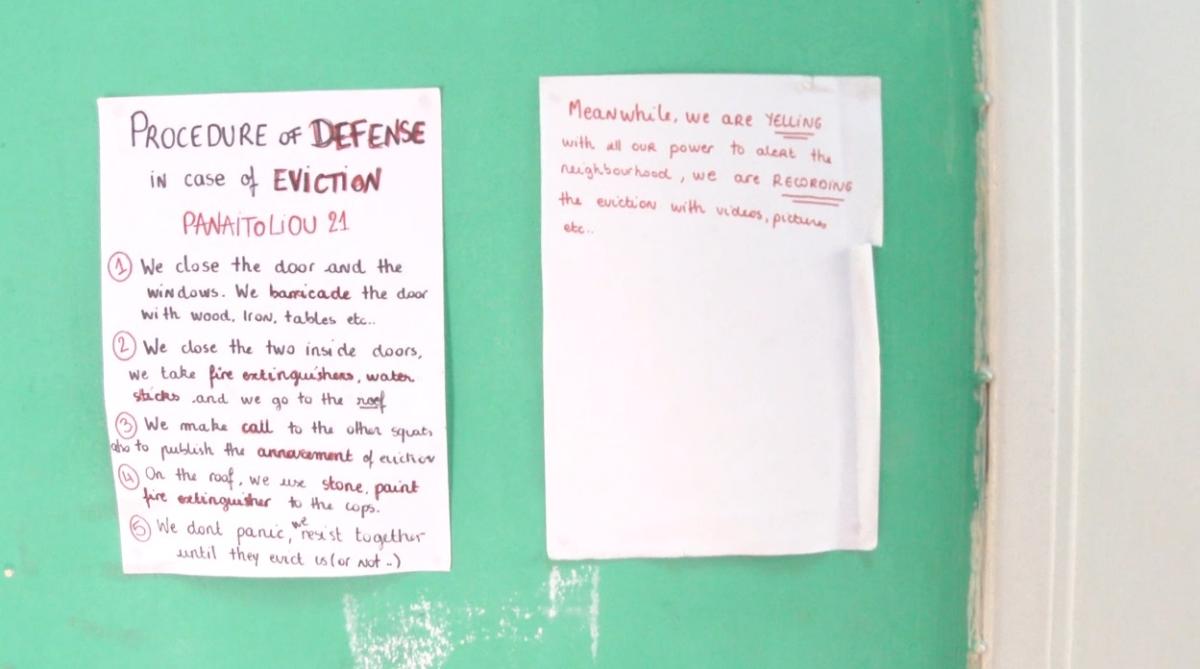 PROCEDURE OF DEFENSE
IN case of EVICTION
PANAITOLIOU 21
1 We close the door and the
windows. We barricade the door
with wood, Iron, tables etc..
2 We close the two inside doors,
we take fire extinguishers, water
sticks and we go to the roof
3 We make call to the other squats
also to publish the annoucement of eviction
4 On the roof, we use stone, paint
fire extinguisher to the cops.
5 We dont panic, we resist together
until they evict us (or not..)
Meanwhile, we are YELLING
with all our power to alert the
neighbourhood, we are RECORDING
the eviction with videos, pictures
etc..